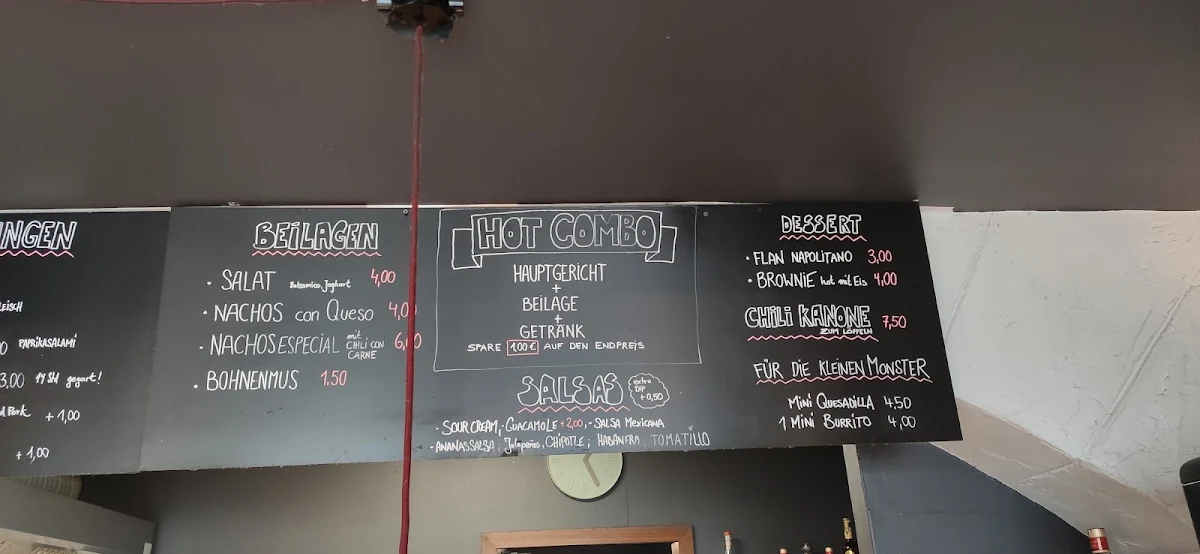 NGEN
LEISCH
PAPRIKASALAMI
3,00 gegart!
Pork + 1,00
+ 1,00
BEILAGEN
• SALAT Balsamico, Joghurt 4,00
• NACHOS con QUESO 4,0
• NACHOS ESPECIAL mit CHILI CON CARNE 6,
• BOHNENMUS 1.50
HOT COMBO
HAUPTGERICHT
+
BEILAGE
+
GETRÄNK
SPARE 1,00€ AUF DEN ENDPREIS
SALSAS
extra DIP +0,50
• SOUR CREAM, • GUACAMOLE +2,00, • SALSA MEXICANA
• ANANASSALSA; Jalapeños, CHIPOTLE; HABANERA, TOMATILLO
DESSERT
• FLAN NAPOLITANO 3,00
• BROWNIE hot mit Eis 4,00
CHILI KANONE 7,50
ZUM LÖFFELN
FÜR DIE KLEINEN MONSTER
MINI QUESADILLA 4,50
1 MINI BURRITO 4,00